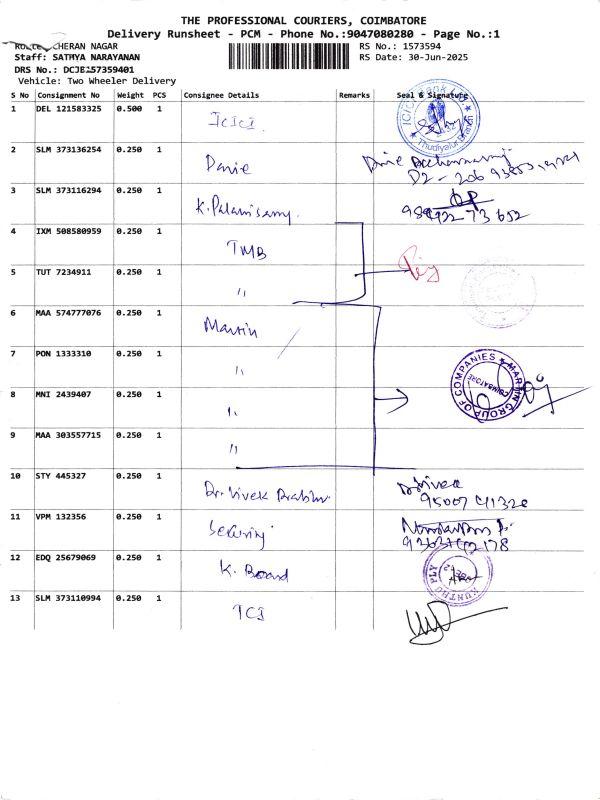 THE PROFESSIONAL COURIERS, COIMBATORE
Delivery Runsheet - PCM - Phone No.:9047080280 - Page No.:1
CHERAN NAGAR RS No.: 1573594
Staff: SATHYA NARAYANAN RS Date: 30-Jun-2025
DRS No.: DCJE157359401
Vehicle: Two Wheeler Delivery
S No Consignment No Weight PCS Consignee Details Remarks Seal & Signature
1 DEL 121583325 0.500 1 ICICI
2 SLM 373136254 0.250 1 Danie
3 SLM 373116294 0.250 1 K. Palanisamy
4 IXM 508580959 0.250 1 TMB
5 TUT 7234911 0.250 1 "
6 MAA 574777076 0.250 1 Martin
7 PON 1333310 0.250 1 "
8 MNI 2439407 0.250 1 "
MARTIN GROUP OF COMPANIES
COIMBATORE
9 MAA 303557715 0.250 1 "
10 STY 445327 0.250 1 Dr. Vivek Prabhu
11 VPM 132356 0.250 1 Security
12 EDQ 25679069 0.250 1 K. Board
13 SLM 373110994 0.250 1 TCI